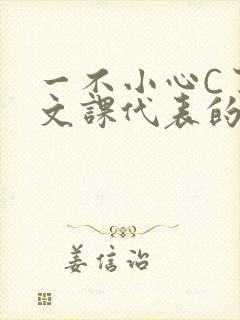 一不小心C
文課代表的
姜信诒